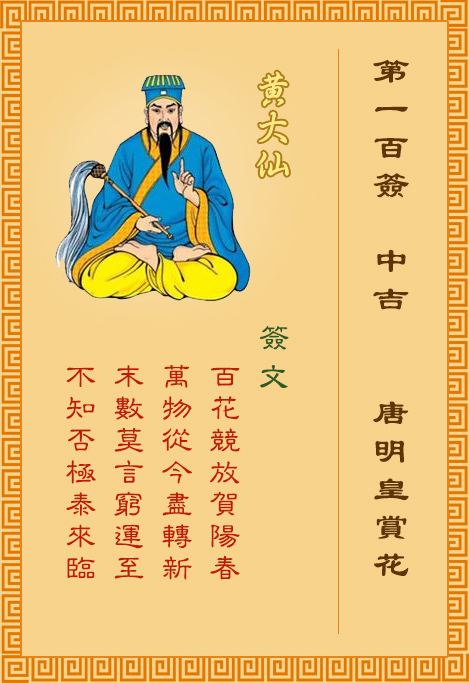 第一百簽 中吉 唐明皇賞花
黃大仙
簽文
百花競放賀陽春
萬物從今盡轉新
末數莫言窮運至
不知否極泰來臨